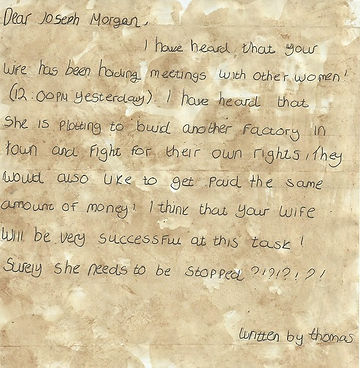 Dear Joseph Morgan,
I have heard that your
wife has been having meetings with other women!
(12.00pm yesterday). I have heard that
She is plotting to build another factory in
town and fight for their own rights, They
would also like to get paid the same
amount of money! I think that your wife
will be very successful at this task!
Surely she needs to be stopped?!?!?!?!
written by thomas